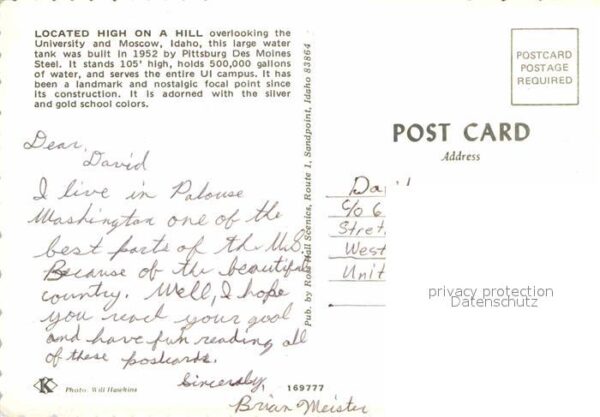 LOCATED HIGH ON A HILL overlooking the
University and Moscow, Idaho, this large water
tank was built in 1952 by Pittsburg Des Moines
Steel. It stands 105' high, holds 500,000 gallons
of water, and serves the entire UI campus. It has
been a landmark and nostalgic focal point since
its construction. It is adorned with the silver
and gold school colors.
Dear,
David
I live in Palouse
Washington one of the
best parts of the U.S.
Because of the beautiful
country. Well, I hope
you reach your goal
and have fun reading all
of these postcards.
Sincerely,
Brian Meister
K
Photo: Will Hawkins
169777
Pub. by Ross Hall Scenics, Route 1, Sandpoint, Idaho 83864
POSTCARD
POSTAGE
REQUIRED
POST CARD
Address
Da
c/o G
Stret
West
Unit
privacy protection
Datenschutz